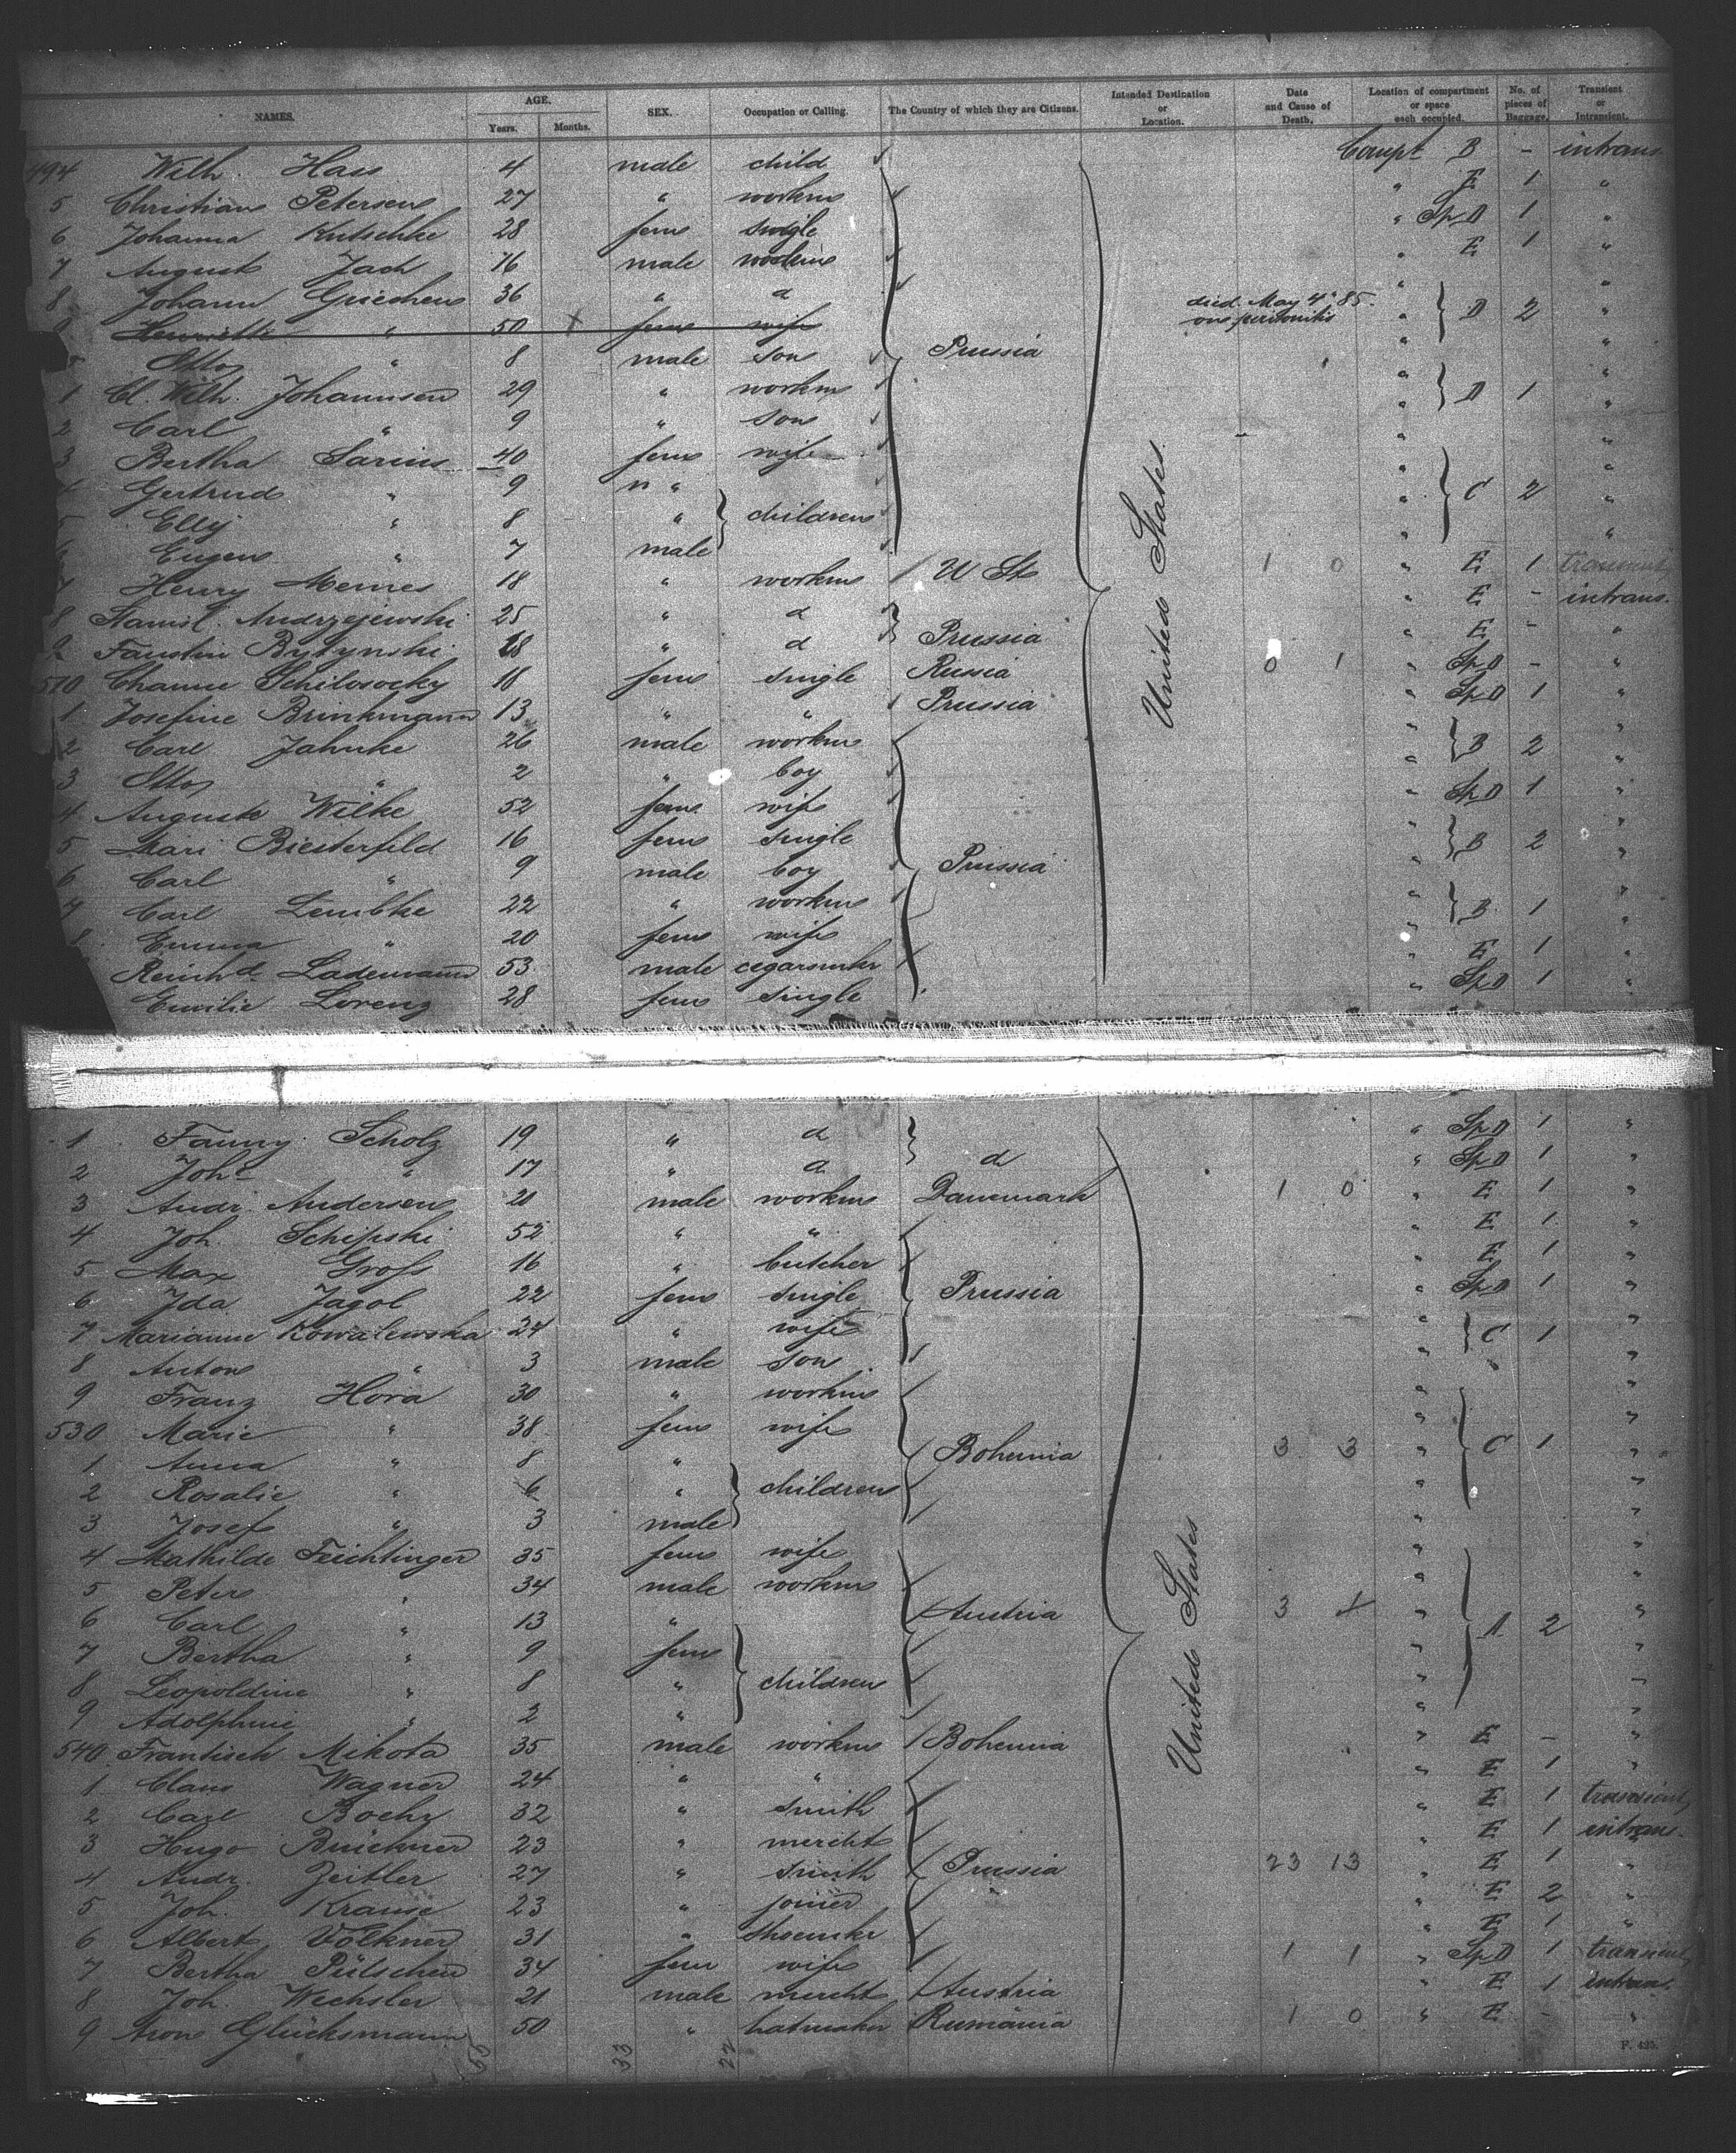 NAMES. AGE. Years. Months. SEX. Occupation or Calling. The Country of which they are Citizens. Intended Destination or Location. Date and Cause of Death. Location of compartment or space each occupied. No. of pieces of Baggage. Transient or Intransient.
494 Wilh. Hass 4 male child Compt B - intrans
5 Christian Petersen 27 " workm " E 1 "
6 Johanna Kutschke 28 fem single " Sp D 1 "
7 August Jach 16 male workm " E 1 "
8 Johann Grieshen 36 " d " "
9 Henriette " 50 fem wife died May 4th 85. on peritonitis " D 2 "
Otto " 8 male son Prussia " "
1 Cl. Wilh. Johannsen 29 " workm " D 1 "
2 Carl " 9 " son " "
3 Bertha Sarius 40 fem wife " "
Gertrud " 9 " " C 2 "
5 Elly " 8 " children " "
Eugen " 7 male "
7 Henry Meines 18 " workm U St 1 0 " E 1 transient
8 Stanisl. Andrzejewski 25 " d " E - intrans.
9 Faustin Bytynski 28 " d Prussia " E - "
510 Channe Schilosocky 18 fem single Russia 0 1 " Sp D - "
1 Josefine Brinkmann 13 " " Prussia " Sp D 1 "
2 Carl Jahnke 26 male workm " B 2 "
3 Otto " 2 " boy " "
4 Auguste Wilke 52 fem wife " Sp D 1 "
5 Mari Biesterfeld 16 fem single " B 2 "
6 Carl " 9 male boy Prussia " "
7 Carl Lembke 22 " workm " B 1 "
8 Emma " 20 fem wife " "
Reinhd Lademann 53 male cigarmker " E 1 "
Emilie Lorenz 28 fem single " Sp D 1 "
United States
1 Fanny Scholz 19 " d " Sp D 1 "
2 Joh " 17 " d d " Sp D 1 "
3 Andr. Andersen 21 male workm Danemark 1 0 " E 1 "
4 Joh. Schipski 52 " " " E 1 "
5 Max Gross 16 " butcher " E 1 "
6 Ida Jagol 22 fem single Prussia " Sp D 1 "
7 Marianne Kowalewska 24 " wife " C 1 "
8 Anton " 3 male son " "
9 Franz Hora 30 " workm " "
530 Marie " 38 fem wife " "
1 Anna " 8 " Bohemia 3 3 " C 1 "
2 Rosalie " 6 " children " "
3 Josef " 3 male " "
4 Mathilde Feichtinger 35 fem wife " "
5 Peter " 34 male workm " "
6 Carl " 13 " Austria 3 " A 2 "
7 Bertha " 9 fem " "
8 Leopoldine " 8 " children " "
9 Adolphine " 2 " " "
540 Frantisch Mikota 35 male workm Bohemia " E - "
1 Claus Wagner 24 " " " E 1 "
2 Carl Boehz 32 " smith " E 1 transient
3 Hugo Brückner 23 " mercht " E 1 intran.
4 Andr. Zeitler 27 " smith Prussia 23 13 " E 1 "
5 Joh. Krause 23 " joiner " E 2 "
6 Albert Völkner 31 " shoemkr " E 1 "
7 Bertha Pülschen 34 fem wife 1 1 " Sp D 1 transient
8 Joh. Wechsler 21 male mercht Austria " E 1 intran.
9 Aron Glücksmann 50 " hatmaker Rumänia 1 0 " E - "
United States
33 22
P. 425.